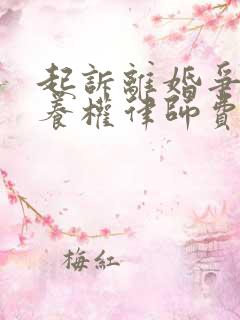 起訴離婚爭
養權律師費
梅紅